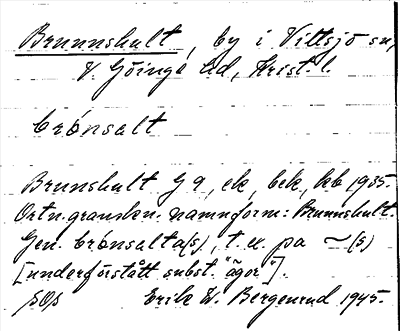 Brunnshult, by i Vittsjö sn,
V. Göinge hd, Krist. l.
brónsalt
Brunshult G 9, ek, bek, kb 1935.
Ortn.granskn. namnform: Brunnshult.
Gen. brónsalta(s), t.ex. på ~(s)
[underförstått subst. "ägor"].
SOS Erik W. Bergenrud 1945.